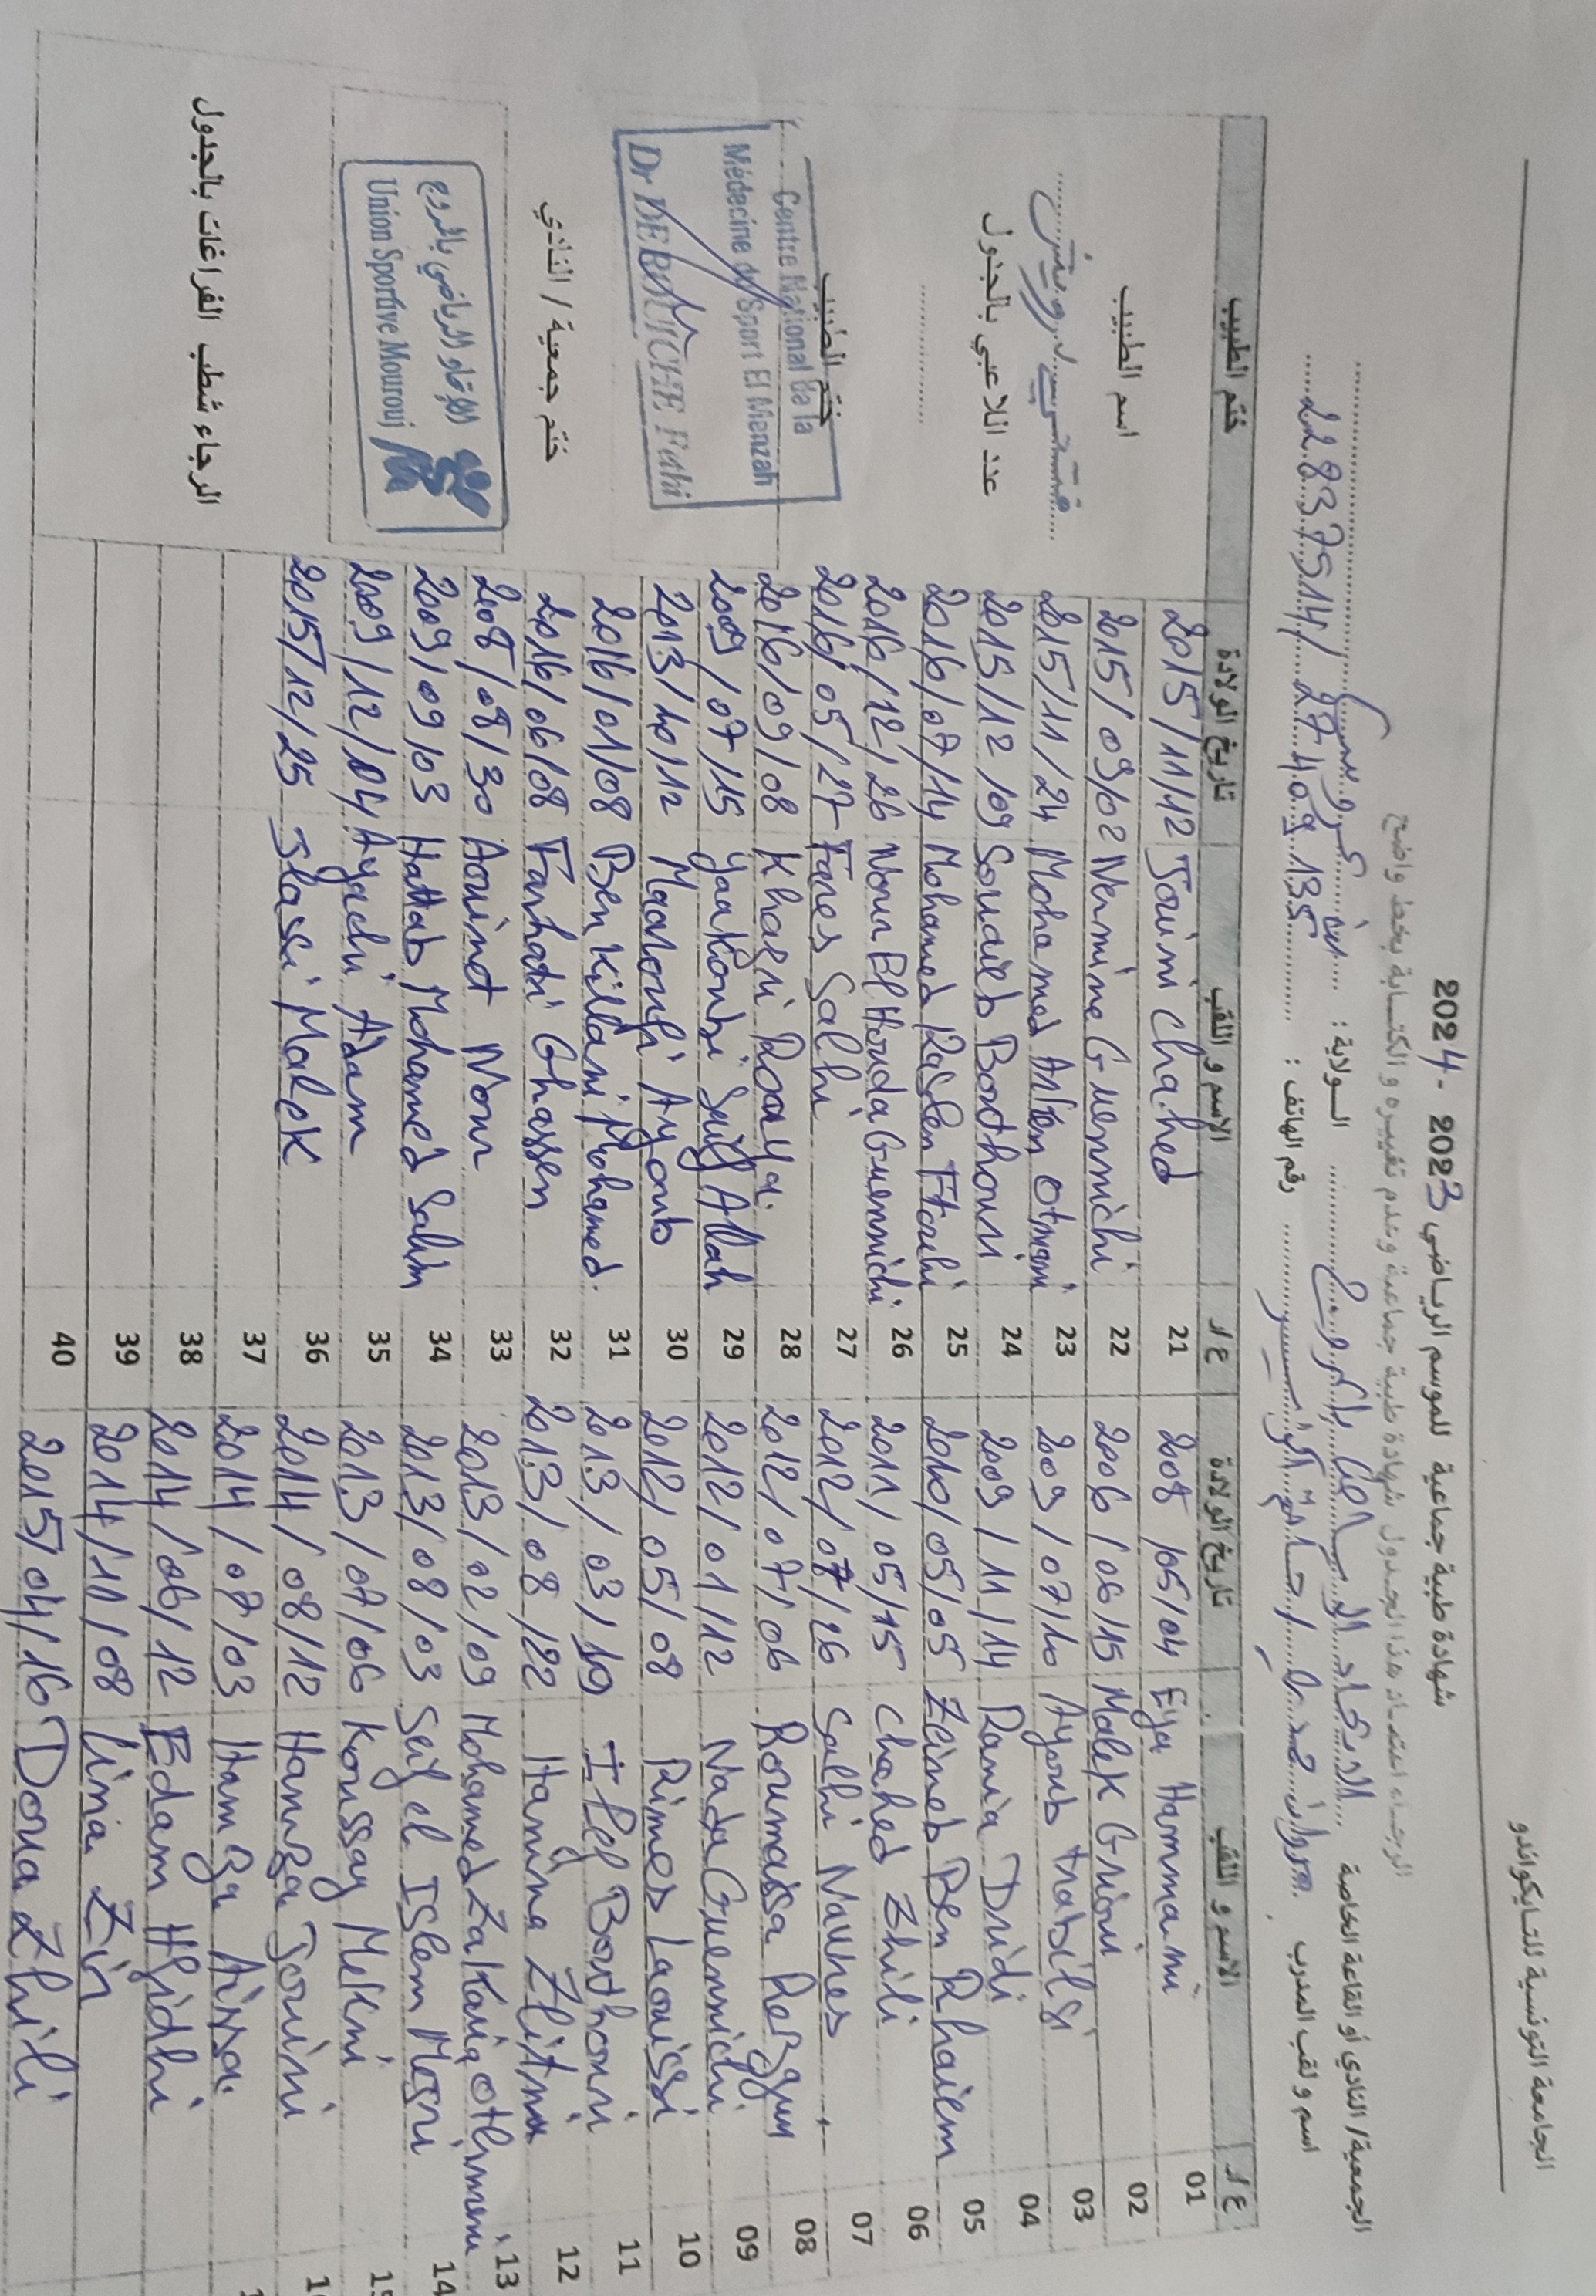 الجامعة التونسية للتايكواندو
شهادة طبية جماعية للموسم الرياضي 2023 - 2024
الرجاء اعتماد هذا الجدول شهادة طبية جماعية وعدم تغييره و الكتابة بخط واضح
الجمعية / النادي أو القاعة الخاصة الاتحاد الرياضي بالمروج الولاية : بن عروس
اسم و لقب المدرب رقم الهاتف : 22837514 / 27409135
ع/ر الاسم و اللقب تاريخ الولادة ع/ر الاسم و اللقب تاريخ الولادة ختم الطبيب
01 Eya Hammami 2008/05/04 21 Jouini Chahed 2015/11/12
02 Malek Grioui 2006/06/15 22 Nermine Guenmichi 2015/09/02
03 Ayoub trabelsi 2009/07/10 23 Mohamed Otmani 2015/11/24
04 Rania Dridi 2009/11/14 24 Souaieb Boothouri 2015/12/09
05 Zeineb Ben Rhaiem 2010/05/05 25 Mohamed Raslen Ftouhi 2016/07/14
06 Chahed Zhili 2011/05/15 26 Nour El Houda Guenmichi 2016/12/26
07 Salhi Nawres 2012/07/26 27 Fares Salhi 2016/05/27
08 Roumaissa Rezgui 2012/07/06 28 Khazri Roaya 2016/09/08
09 Nada Guenmichi 2012/01/12 29 Yaakoubi Seif Allah 2009/07/15
10 Rimes Laouissi 2012/05/08 30 Maaroufi Ayoub 2013/10/12
11 Ilef Boothouri 2013/03/19 31 Ben Killani Mohamed 2016/01/08
12 Hamina Zlitni 2013/08/22 32 Farhati Ghassen 2016/06/08
13 Mohamed Zakaria Othmeni 2013/02/09 33 Aouinet Nour 2008/08/30
14 Seif el Islem Mesri 2013/08/03 34 Hattab Mohamed Salim 2009/09/03
Koussay Melki 2013/07/06 35 Ayachi Adam 2009/12/04
Hamza Jouini 2014/08/12 36 Jlassi Malek 2015/12/25
Hamza Aissa 2014/07/03 37
Edam Hfidhi 2014/06/12 38
Lina Zir 2014/11/08 39
Doua Zhili 2015/04/16 40
اسم الطبيب
فتحي درويش
عدد اللاعبي بالجدول
ختم الطبيب
Centre National de la
Médecine du Sport El Menzah
Dr DEROUICHE Fathi
ختم جمعية / النادي
الإتحاد الرياضي بالمروج
Union Sportive Mourouj
الرجاء شطب الفراغات بالجدول